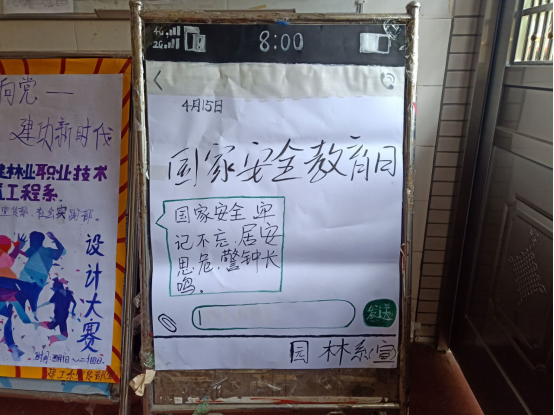 向党一
建功新时代
林业职业技术
工程系
设计大赛
4G
2G
8:00
4月15日
国家安全教育日
国家安全 牢
记不忘.居安
思危,警钟长
鸣。
发送
园林系(宣)